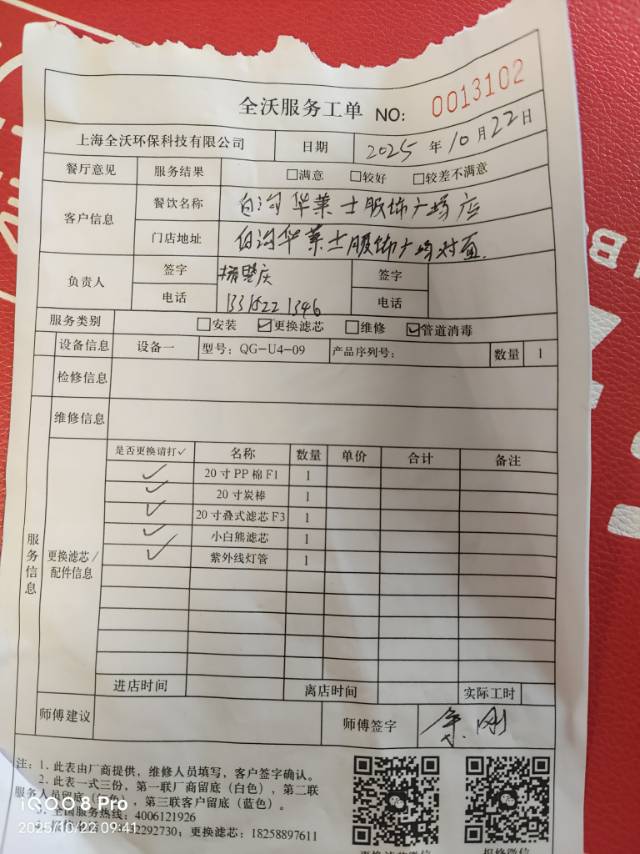 全沃服务工单 NO: 0013102
上海全沃环保科技有限公司 日期 2025 年 10 月 22 日
餐厅意见 服务结果 □满意 □较好 □较差不满意
客户信息 餐饮名称 白沟华莱士服饰广场店
门店地址 白沟华莱士服饰广场对面
负责人 签字 签字
电话 电话
服务类别 □安装 ☑更换滤芯 □维修 ☑管道消毒
设备信息 设备一 型号: QG-U4-09 产品序列号: 数量 1
检修信息
维修信息
服务信息
更换滤芯/配件信息
是否更换请打✓ 名称 数量 单价 合计 备注
✓ 20寸PP棉F1 1
✓ 20寸炭棒 1
✓ 20寸叠式滤芯F3 1
✓ 小白熊滤芯 1
✓ 紫外线灯管 1
进店时间 离店时间 实际工时
师傅建议 师傅签字 刚
注: 1. 此表由厂商提供，维修人员填写，客户签字确认。
2. 此表一式三份，第一联厂商留底（白色），第二联
服务人员留底 第三联客户留底（蓝色）。
3. 全国服务热线: 4006121926
2292730; 更换滤芯: 18258897611
iQOO 8 Pro
2025/10/22 09:41